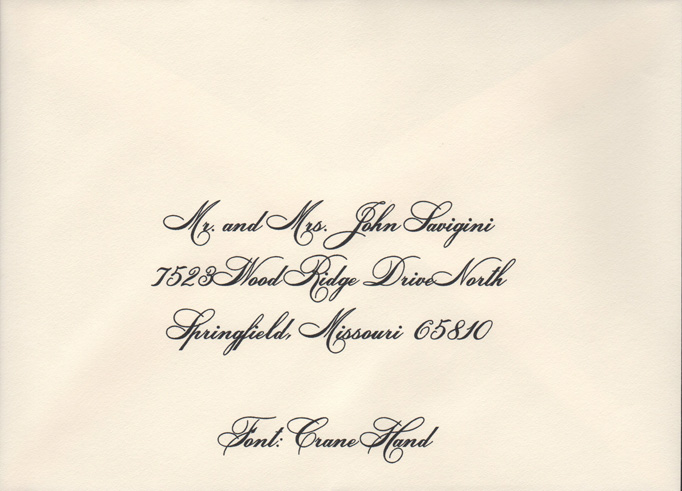 Mr. and Mrs. John Savigini
7523 Wood Ridge Drive North
Springfield, Missouri 65810
Font: Crane Hand